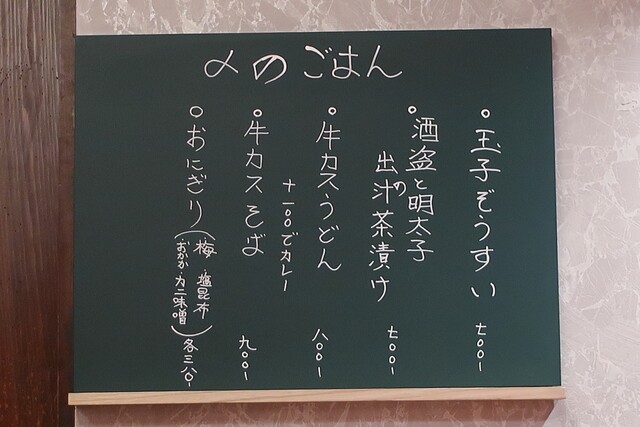 〆のごはん
○玉子ぞうすい 七〇〇-
○酒盗と明太子の
出汁茶漬け 七〇〇-
○牛カスうどん 八〇〇-
+一〇〇でカレー
○牛カスそば 九〇〇-
○おにぎり(梅 塩昆布
おかか カニ味噌) 各三八〇-